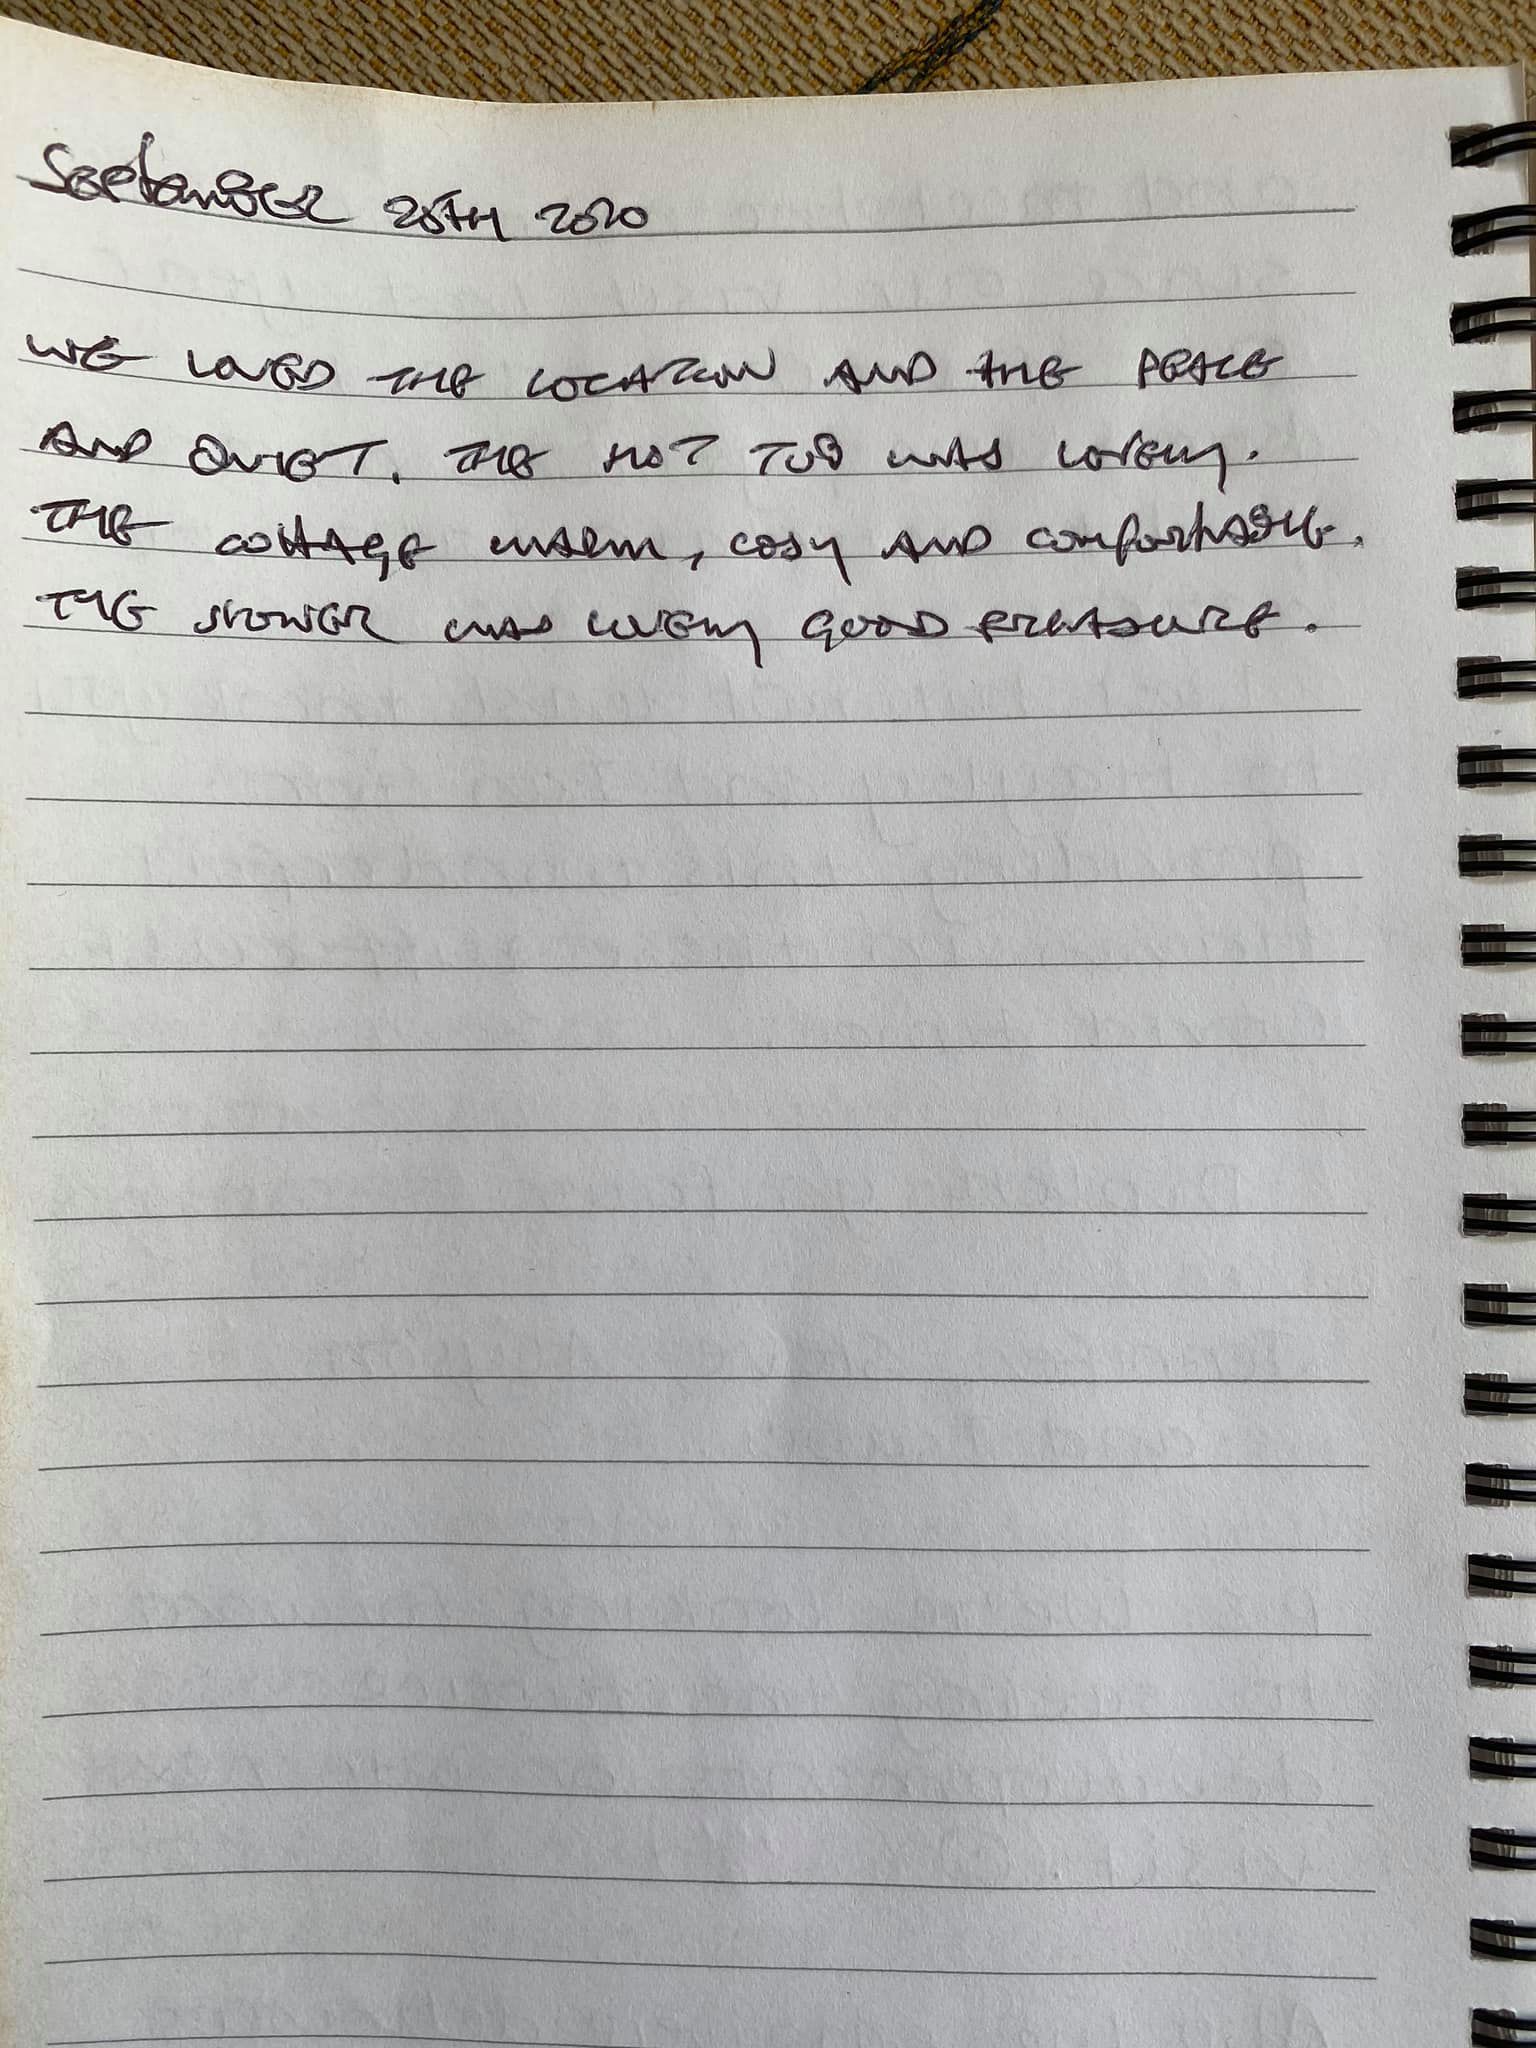 September 20TH 2020
WE LOVED THE LOCATION AND THE PEACE
AND QUIET. THE HOT TUB WAS LOVELY.
THE COTTAGE WARM, COSY AND COMFORTABLE.
THE SHOWER WAS LOVELY GOOD PREASURE.